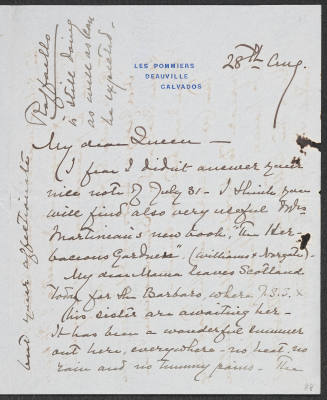 LES POMMIERS
DEAUVILLE
CALVADOS
28th Aug.
My dear Queen —
I fear I didn't answer your
nice note of July 31 - I think you
will find also very useful Mrs
Martineau's new book, "The Her-
baceous Garden". (Williams & Norgate).
My dear Mama leaves Scotland
today for the Barbaro, where J.S.S. &
his sister are awaiting her -
It has been a wonderful summer
out here, everywhere - no heat, no
rain and no tummy pains. The
Raffaello
is still doing
as well as can
be expected -
and your affectionate